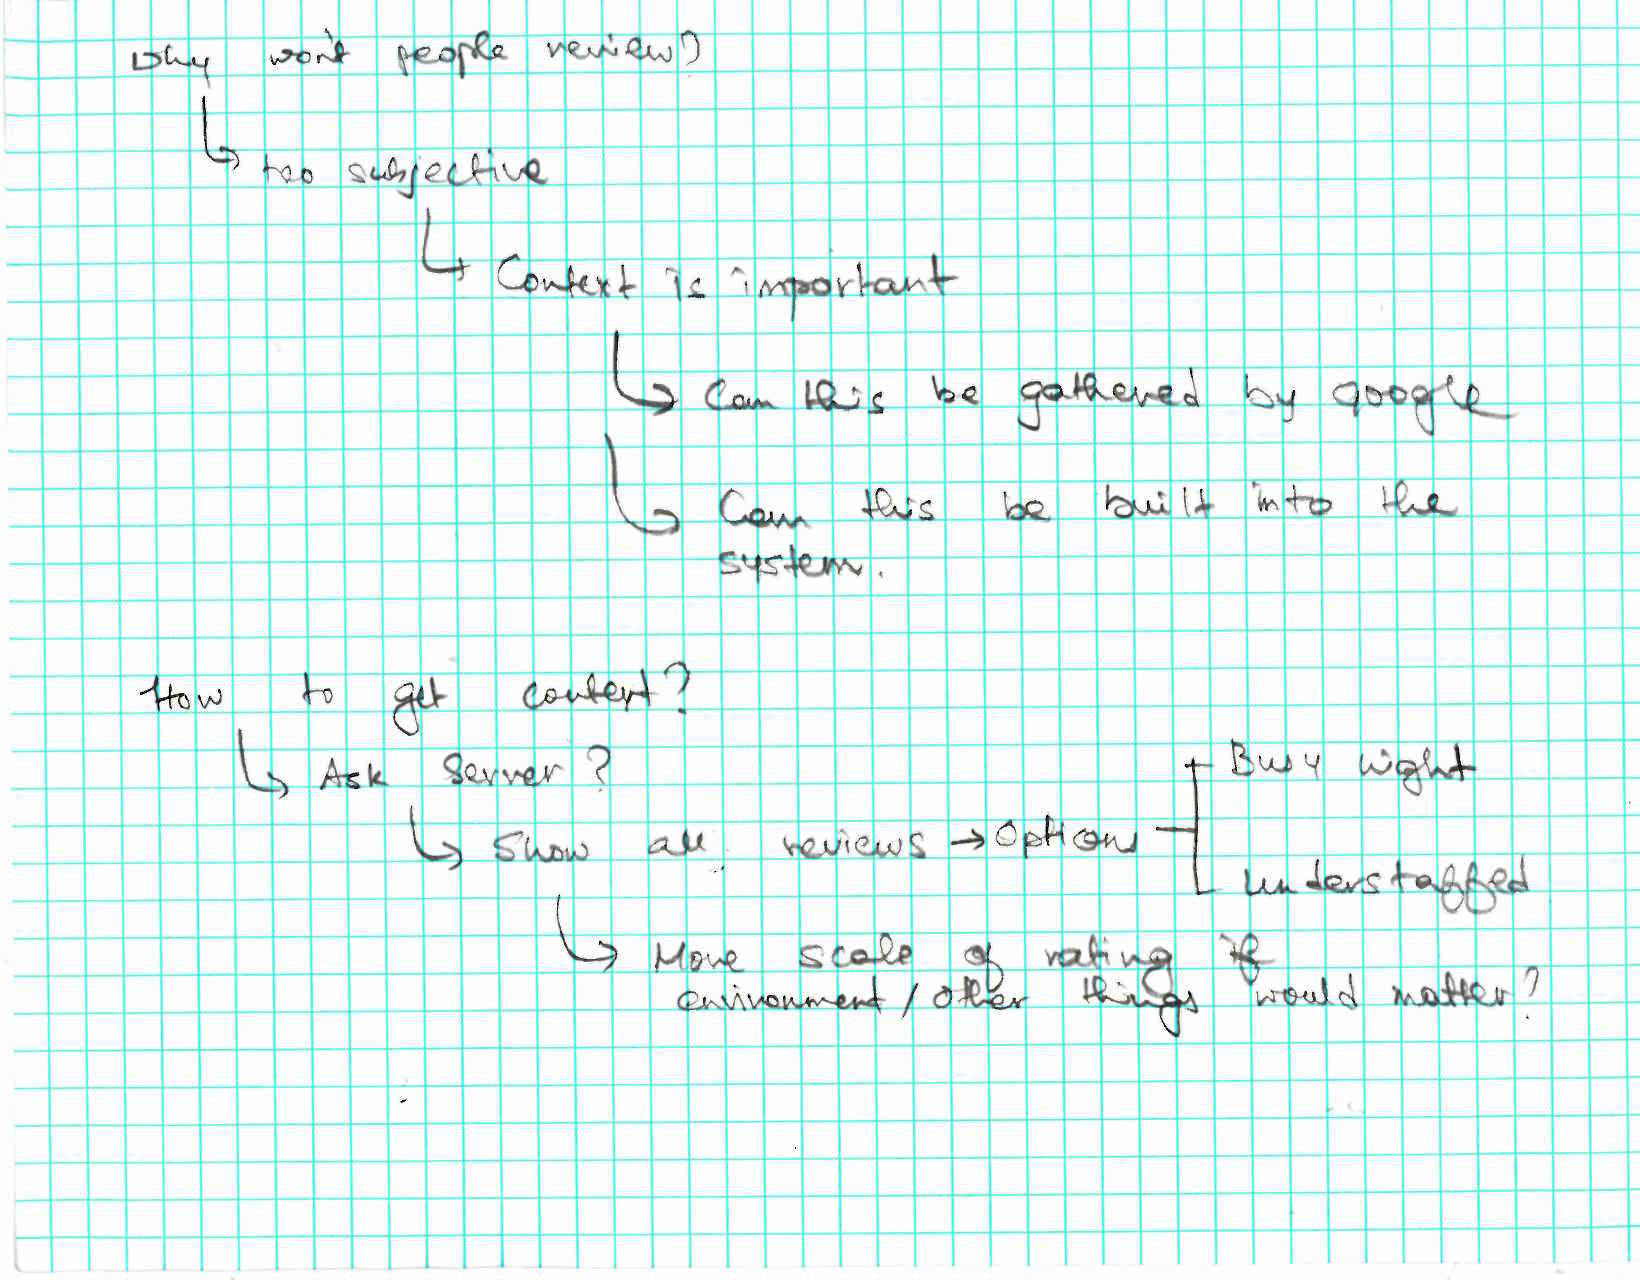 Why won't people review?
too subjective
Context is important
Can this be gathered by google
Can this be built into the
system.
How to get context?
Ask Server?
Busy night
Show all reviews → Options
understaffed
Move scale of rating if
environment / other things would matter?